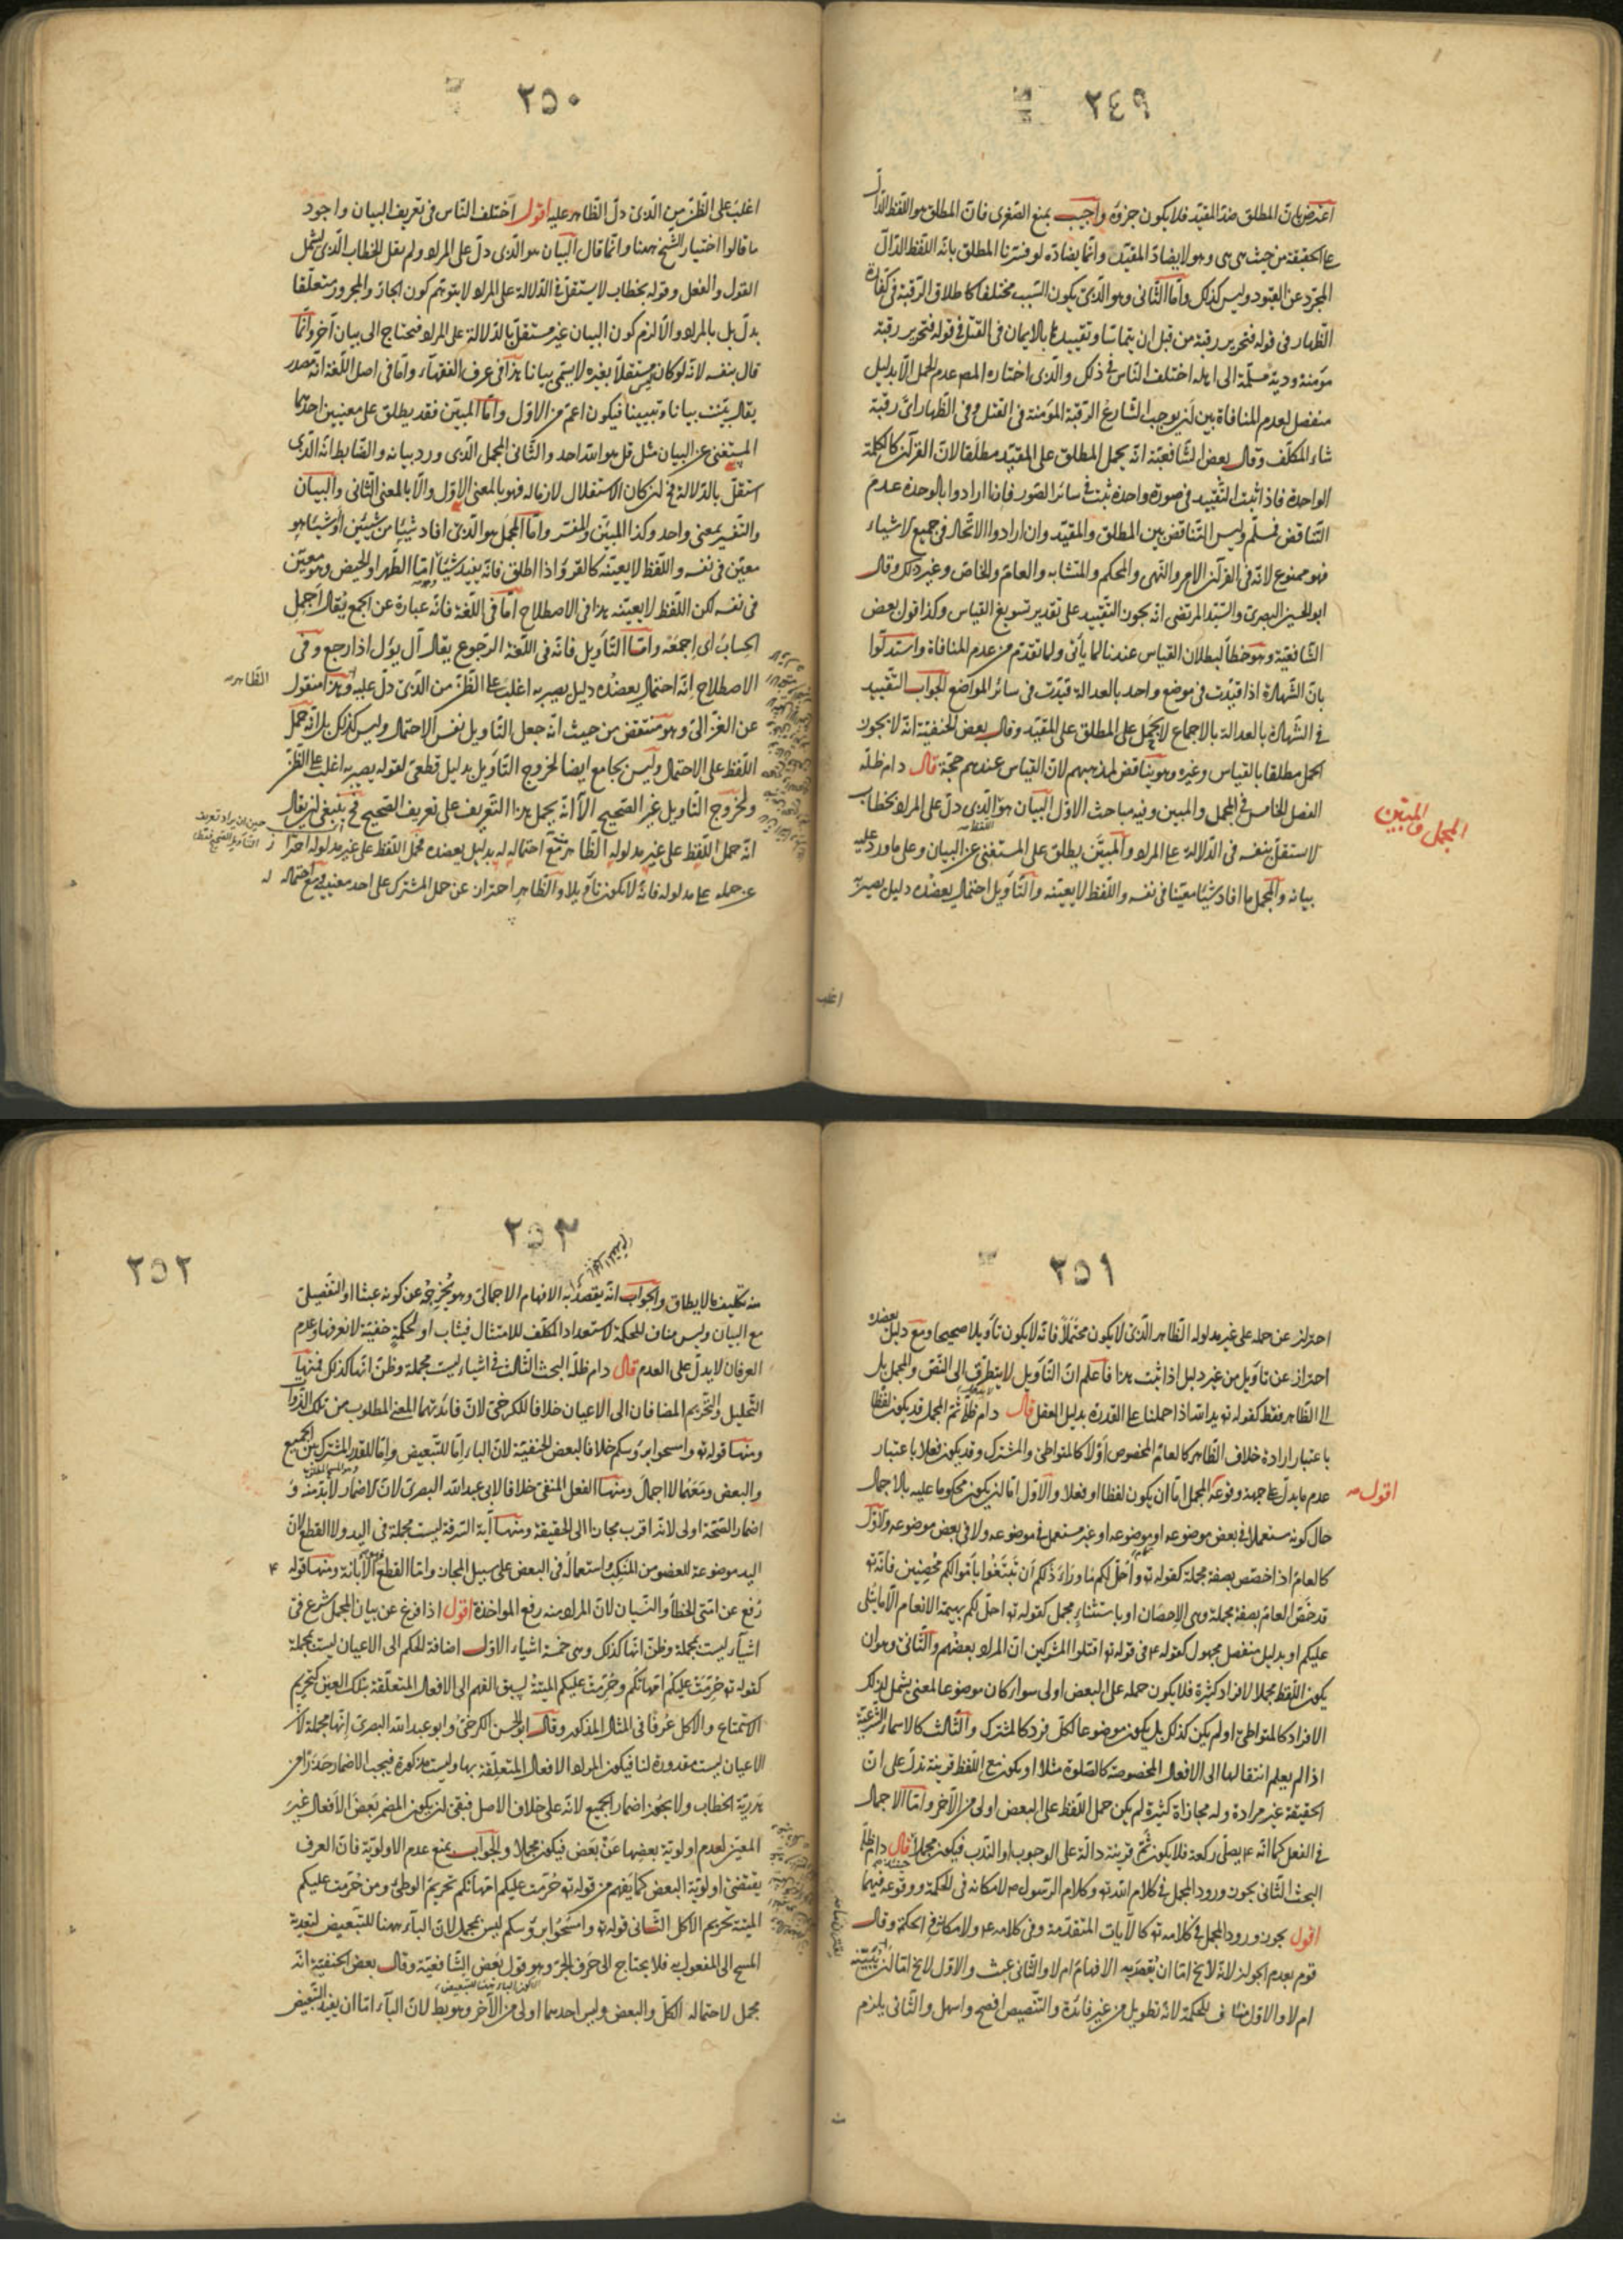 ٢٤٩
اعترض بان المطلق ضد المقيد فلا يكون جزؤه واجيب بمنع الصغرى فان المطلق هو اللفظ الدال
على الحقيقة من حيث هى هى وهو لا يضاد المقيد وانما يضاده لو فسرنا المطلق بانه اللفظ الدال
المجرد عن القيود وليس كذلك واما الثانى وهو الذى يكون السبب مختلفا كاطلاق الرقبة فى كفارة
الظهار فى قوله فتحرير رقبة من قبل ان يتماسا وتقييدها بالايمان فى القتل فى قوله فتحرير رقبة
مؤمنة ودية مسلمة الى اهله اختلف الناس فى ذلك والذى اختاره المص عدم الحمل الا بدليل
منفصل لعدم المنافاة بين ان يوجب الشارع الرقبة المؤمنة فى القتل وفى الظهار اى رقبة
شاء المكلف وقال بعض الشافعية انه يحمل المطلق على المقيد مطلقا لان القرآن كالكلمة
الواحدة فاذا ثبت التقييد فى صورة واحدة ثبت فى سائر الصور فاذا ارادوا بالوحدة عدم
التناقض فمسلم وليس التناقض بين المطلق والمقيد وان ارادوا الاتحاد فى جميع الاشياء
فهو ممنوع لانه فى القرآن الامر والنهى والمحكم والمتشابه والعام والخاص وغير ذلك وقال
ابو الحسين البصرى والسيد المرتضى انه يجوز التقييد على تقدير تسويغ القياس وكذا قول بعض
الشافعية وهو خطأ لبطلان القياس عندنا لما يأتى ولما تقدم من عدم المنافاة واستدلوا
بان الشهادة اذا قيدت فى موضع واحد بالعدالة قيدت فى سائر المواضع الجواب التقييد
فى الشهادة بالعدالة بالاجماع لا يحمل على المطلق على المقيد وقال بعض الحنفية انه لا يجوز
الحمل مطلقا بالقياس وغيره وهو يناقض لمذهبهم لان القياس عندهم حجة قال دام ظله
الفصل الخامس فى المجمل والمبين وفيه مباحث الاول البيان هو الذى دل على المراد بخطاب
لا يستقل بنفسه فى الدلالة على المراد والمبين يطلق على المستغنى عن البيان وعلى ما ورد عليه
بيانه والمجمل ما افاد شيئا معينا فى نفسه واللفظ لا يعينه والتأويل احتمال يعضده دليل يصير به
المجمل والمبين
اغلب
٢٥٠
اغلب على الظن من الذى دل الظاهر عليه اقول اختلف الناس فى تعريف البيان واجود
ما قالوا اختيار الشيخ ههنا وانما قال البيان هو الذى دل على المراد ولم يقل الخطاب الذى يشمل
القول والفعل وقوله بخطاب لا يستقل فى الدلالة على المراد لا يتوهم كون الجار والمجرور متعلقا
بدل بل بالمراد والا لزم كون البيان غير مستقل بالدلالة على المراد فيحتاج الى بيان آخر وانما
قال بنفسه لانه لو كان مستقلا بغيره لا يسمى بيانا هذا فى عرف الفقهاء واما فى اصل اللغة انه مصدر
يقال بينت بيانا وتبيينا فيكون اعم من الاول واما المبين فقد يطلق على معنيين احدهما
المستغنى عن البيان مثل قل هو الله احد والثانى المجمل الذى ورد بيانه والضابط انه الذى
استقل بالدلالة فح ان كان الاستقلال لازما له فهو بالمعنى الاول والا بالمعنى الثانى والبيان
والتفسير بمعنى واحد وكذا المبين والمفسر واما المجمل هو الذى افاد شيئا من شيئين او شيئا هو
معين فى نفسه واللفظ لا يعينه كالقرؤ اذا اطلق فانه يفيد شيئا اما الطهر او الحيض وهو معين
فى نفسه لكن اللفظ لا يعينه هذا فى الاصطلاح اما فى اللغة فانه عبارة عن الجمع يقال اجمل
الحساب اى اجمعه واما التأويل فانه فى اللغة الرجوع يقال آل يؤل اذا رجع وفى
الاصطلاح انه احتمال يعضده دليل يصير به اغلب على الظن من الذى دل عليه وهذا منقول
الظاهر
عن الغزالى وهو منتقض من حيث انه جعل التأويل نفس الاحتمال وليس كذلك بل انه حمل
اللفظ على الاحتمال وليس بجامع ايضا لخروج التأويل بدليل قطعى لقوله يصير به اغلب على الظن
ولخروج التأويل غير الصحيح الا انه يحمل هذا التعريف على تعريف الصحيح فح ينبغى ان يقال
انه حمل اللفظ على غير مدلوله الظاهر مع احتماله له بدليل يعضده فحمل اللفظ على غير مدلوله احتراز
عن حمله على مدلوله فانه لا يكون تأويلا والظاهر احتراز عن حمل المشترك على احد معنييه ومع احتماله له
٢٥١
احتراز عن حمله على غير مدلوله الظاهر الذى لا يكون محتملا فانه لا يكون تأويلا صحيحا ومع دليل يعضده
احتراز عن تأويل من غير دليل اذا ثبت هذا فاعلم ان التأويل لا يتطرق الى النص والمجمل بل
الى الظاهر فقط كقوله تع يد الله اذا حملنا على القدرة بدليل العقل قال دام ظله ثم المجمل قد يكون لفظا
باعتبار ارادة خلاف الظاهر كالعام المخصوص اولا كالمتواطى والمشترك وقد يكون فعلا باعتبار
عدم ما يدل على جهة وقوعه المجمل اما ان يكون لفظا او فعلا والاول اما ان يكون محكوما عليه بالاجمال
اقول
حال كونه مستعملا فى بعض موضوعه او موضوعه او غير مستعمل فى موضوعه ولا فى بعض موضوعه والاول
كالعام اذا خصص بصفة مجملة كقوله تع واحل لكم ما وراء ذلكم ان تبتغوا باموالكم محصنين فانه تع
قد خص العام بصفة مجملة وهى الاحصان او باستثناء مجمل كقوله تع احل لكم بهيمة الانعام الا ما يتلى
عليكم او بدليل منفصل مجهول كقوله ع فى قوله تع اقتلوا المشركين ان المراد بعضهم والثانى وهو ان
يكون اللفظ مجملا لافراد كثيرة فلا يكون حمله على البعض اولى سواء كان موضوعا لمعنى يشمل لذلك
الافراد كالمتواطى او لم يكن كذلك بل يكون موضوعا لكل فرد كالمشترك والثالث كالاسماء الشرعية
اذا لم يعلم انتقالها الى الافعال المخصوصة كالصلوة مثلا او يكون مع اللفظ قرينة تدل على ان
الحقيقة غير مرادة وله مجازاة كثيرة لم يكن حمل اللفظ على البعض اولى من الآخر واما الاجمال
فى الفعل كما انه ع يصلى ركعة فلا يكون ثم قرينة دالة على الوجوب او الندب فيكون مجملا قال دام ظله
البحث الثانى يجوز ورود المجمل فى كلام الله تع وكلام الرسول ص لامكانه فى الحكمة ووقوعه فيهما
اقول يجوز ورود المجمل فى كلامه تع كالآيات المتقدمة وفى كلامه ع ولامكانه فى الحكمة وقال
قوم بعدم الجواز لانه لا يخ اما ان يقصد به الافهام ام لا والثانى عبث والاول لا يخ اما ان يبينه
ام لا والاول مناف للحكمة لانه تطويل من غير فائدة والتنصيص افصح واسهل والثانى يلزم
٢٥٢
٢٥٣
منه تكليف ما لا يطاق والجواب انه يقصد به الافهام الاجمالى وهو يخرجه عن كونه عبثا او التفصيلى
مع البيان وليس مناف للحكمة لاستعداد المكلف للامتثال فيثاب او لحكمة خفية لا نعرفها وعدم
العرفان لا يدل على العدم قال دام ظله البحث الثالث فى اشياء ليست مجملة وظن انها كذلك فمنها
التحليل والتحريم المضافان الى الاعيان خلافا للكرخى لان فائدتهما المعنى المطلوب من تلك الذوات
ومنها قوله تع وامسحوا برؤسكم خلافا لبعض الحنفية لان الباء اما للتبعيض واما للقدر المشترك بين الجميع
والبعض ومعهما لا اجمال ومنها الفعل المنفى خلافا لابى عبد الله البصرى لان الاضمار لا بد منه و
اضمار الصحة اولى لانه اقرب مجازا الى الحقيقة ومنها آية السرقة ليست مجملة فى اليد ولا القطع لان
اليد موضوعة للعضو من المنكب واستعماله فى البعض على سبيل المجاز واما القطع الابانة ومنها قوله ع
رفع عن امتى الخطأ والنسيان لان المراد منه رفع المواخذة اقول اذا فرغ عن بيان المجمل شرع فى
اشياء ليست بمجملة وظن انها كذلك وهى خمسة اشياء الاول اضافة الحكم الى الاعيان ليست بمجملة
كقوله تع حرمت عليكم امهاتكم وحرمت عليكم الميتة لسبق الفهم الى الافعال المتعلقة بتلك العين كتحريم
الاستمتاع والاكل عرفا فى المثال المذكور وقال ابو الحسن الكرخى وابو عبد الله البصرى انها مجملة لان
الاعيان ليست مقدورة لنا فيكون المراد الافعال المتعلقة بها وليست مذكورة فيجب الاضمار حذرا من
هدرية الخطاب ولا يجوز اضمار الجميع لانه على خلاف الاصل فبقى ان يكون المضمر بعض الافعال غير
المعين لعدم اولوية بعضها عن بعض فيكون مجملا والجواب بمنع عدم الاولوية فان العرف
يقتضى اولوية البعض كما يفهم من قوله تع حرمت عليكم امهاتكم تحريم الوطى ومن حرمت عليكم
الميتة تحريم الاكل الثانى قوله تع وامسحوا برؤسكم ليس بمجمل لان الباء ههنا للتبعيض لتعدية
المسح الى المفعول به فلا يحتاج الى حرف الجر وهو قول بعض الشافعية وقال بعض الحنفية انه
مجمل لاحتماله الكل والبعض وليس احدهما اولى من الآخر وهو بط لان الباء اما ان يفيد التبعيض